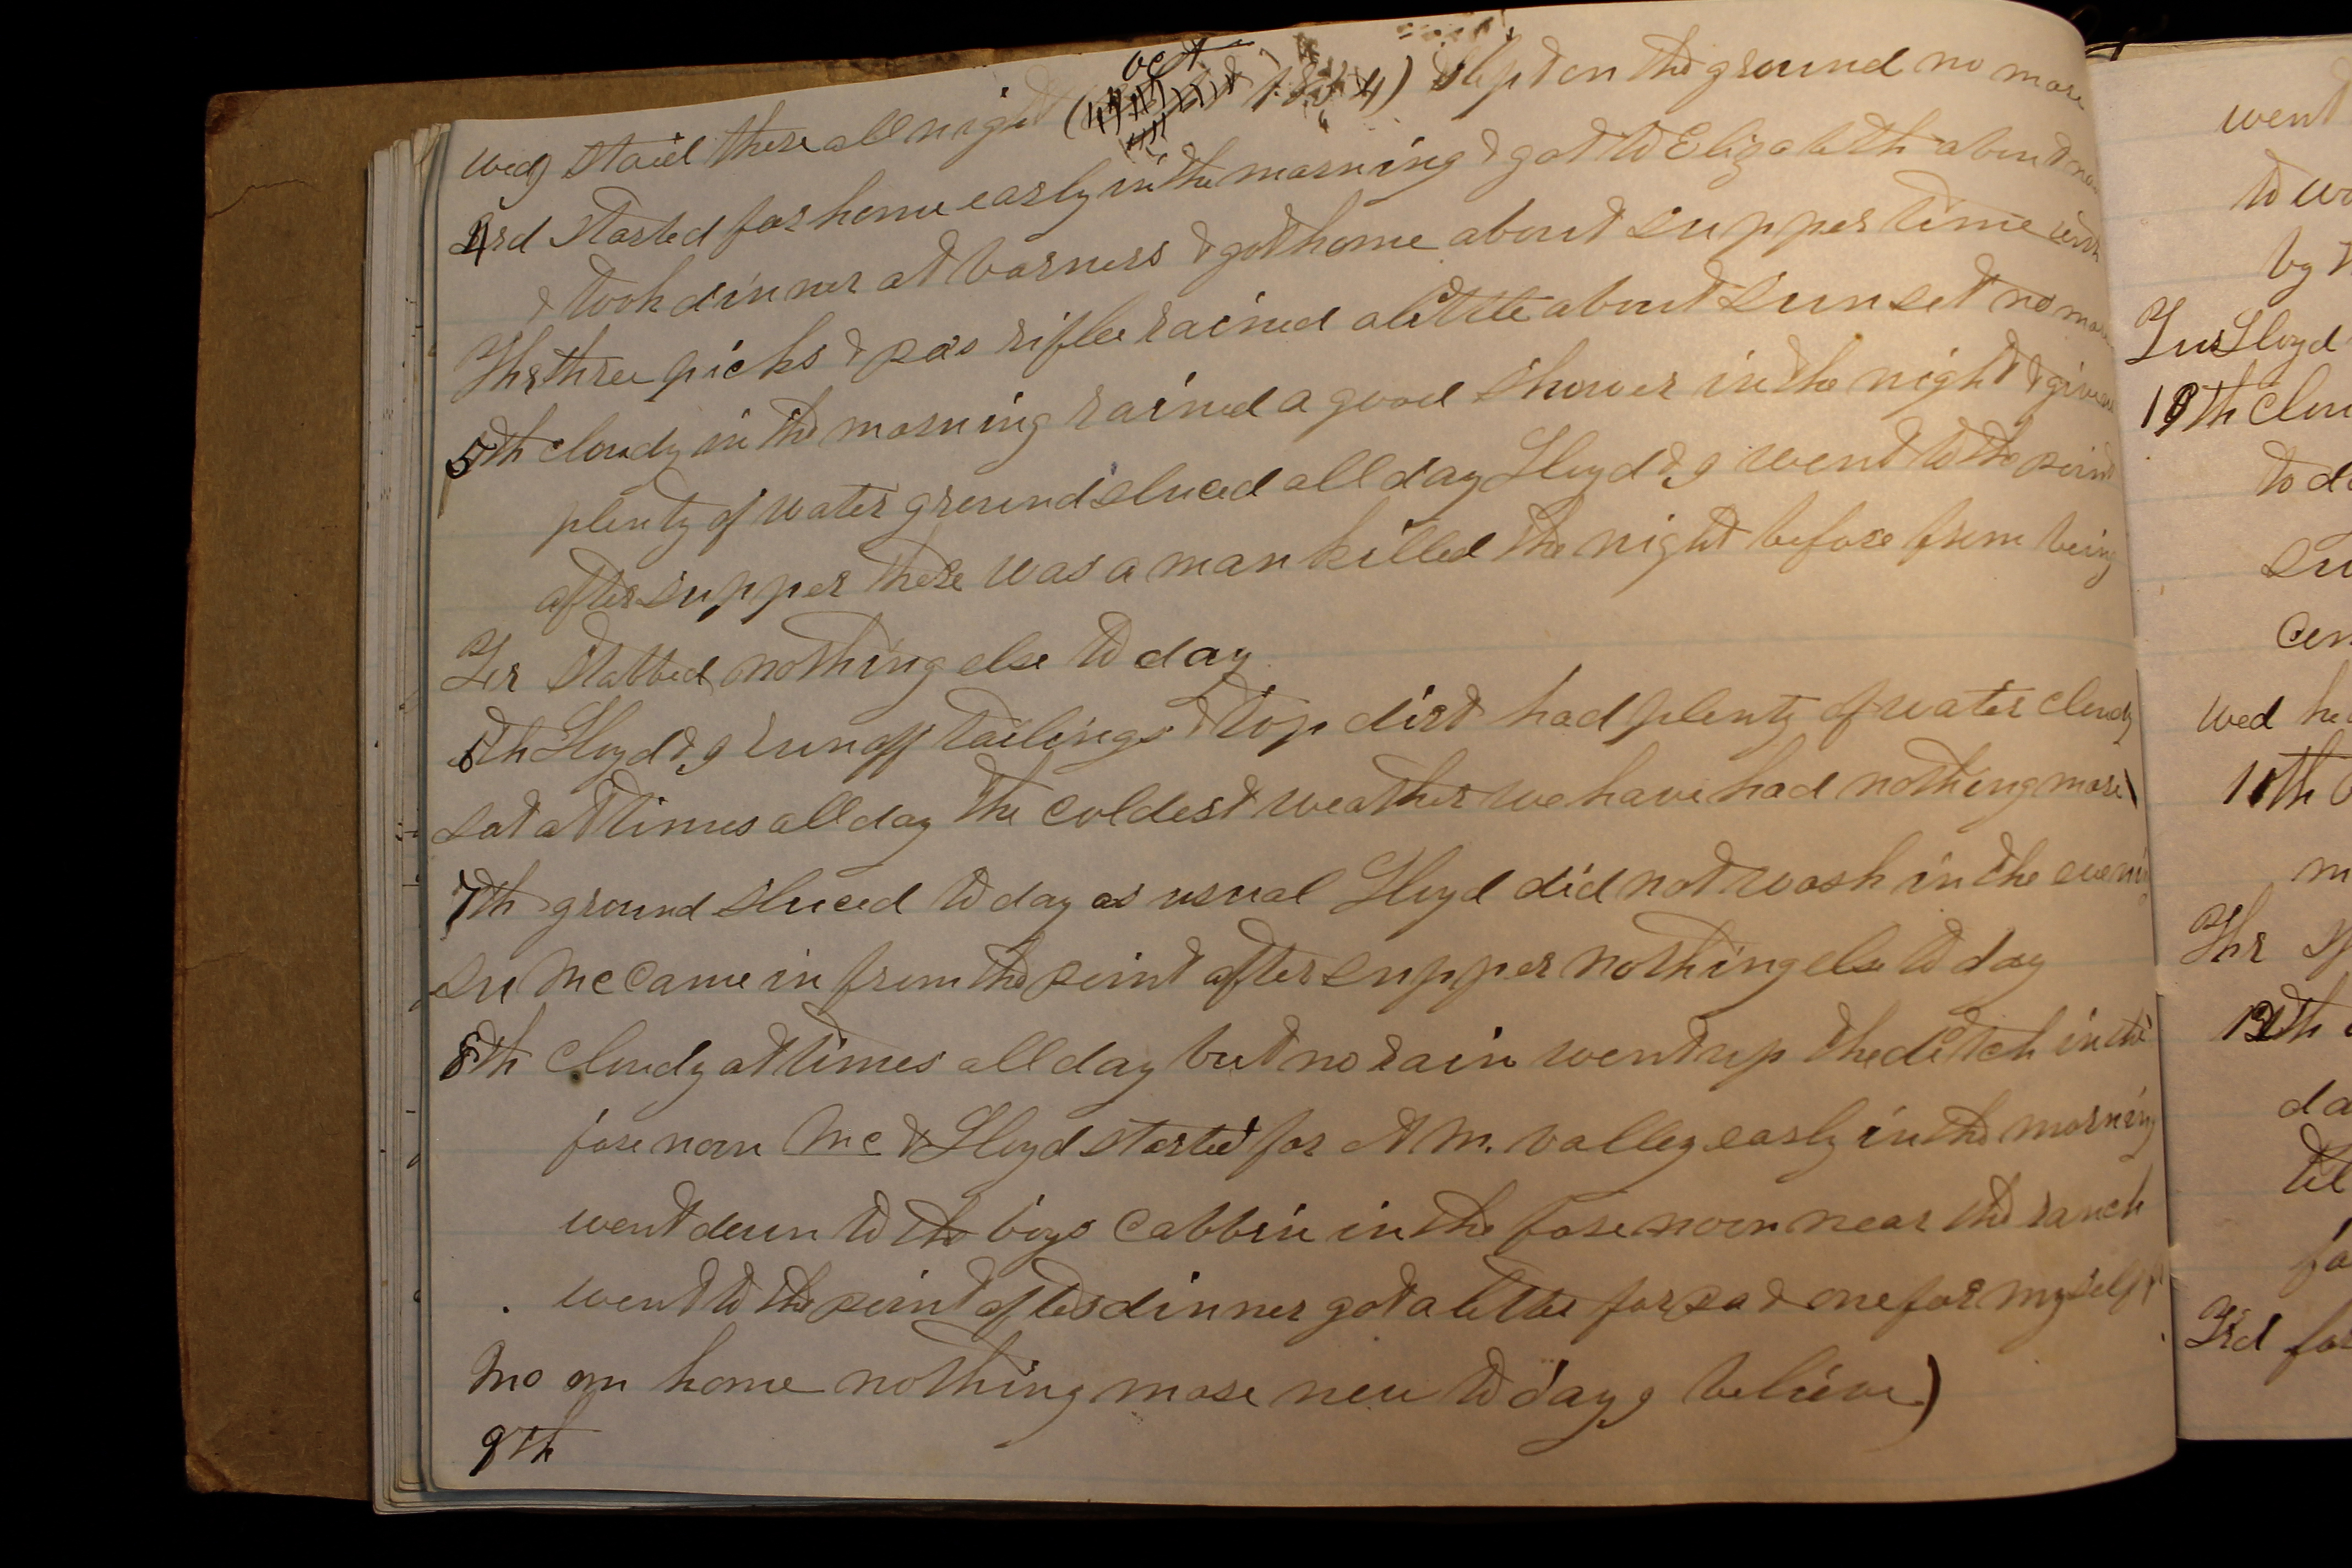 oct
wed staid there all night ( 1854) slept on the ground no more
4rd started for home early in the morning & got to Elizabeth about
& took dinner at barners & got home about supper time with
Thr three picks & pas rifle rained alittle about sunset no more
5th cloudy in the morning rained a good shower in the night & give us
plenty of water ground sluced all day Lloyd & I went to the point
after supper there was a man killed the night before from being
Fr stabbed nothing else to day
6th Lloyd & I run off tailings & top dirt had plenty of water cloudy
sat at times all day the coldest weather we have had nothing more)
7th ground sluced to day as usual Lloyd did not wash in the evening
su Mc came in from the point after supper nothing else to day
8th cloudy at times all day but no rain went up the ditch in the
fore noon Mc & Lloyd started for A M. valley early in the morning
went down to the boys cabbin in the fore noon near the ranch
went to the point after dinner got a letter for pa & one for myself
mo home nothing more new to day I believe)
9th
went
by
Tus Lloyd
10th
to
su
wed
11th
m
Thr
12th
da
fo